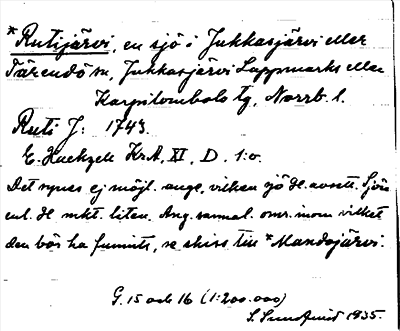 *Rutijärvi, en sjö i Jukkasjärvi eller
Tärendö sn, Jukkasjärvi Lappmarks eller
Karpilombolo tg, Norrb. l.
Ruti J: 1743.
E. Hackzell KrA, XI, D. 1:o.
Det synes ej möjl. ange, vilken sjö som avsetts. Sjön
enl. mkt. liten. Ang. samma omr. inom vilket
den bör ha funnits, se skiss till *Mandojärvi.
G. 15 och 16 (1:200.000)
S. Sundqvist 1935.